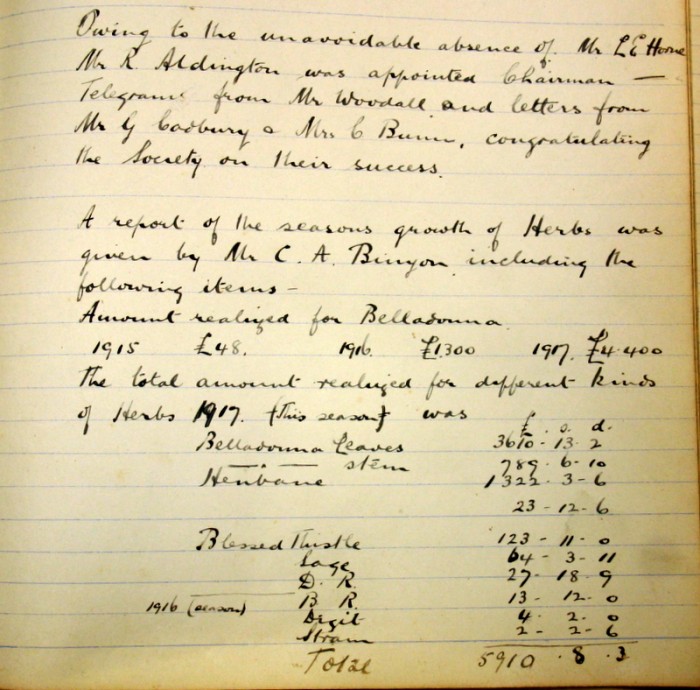 Owing to the unavoidable absence of Mr L E Horne
Mr R. Aldington was appointed Chairman —
Telegrams from Mr Woodall and letters from
Mr G Cadbury & Mrs C Bunn, congratulating
the Society on their success.
A report of the seasons growth of Herbs was
given by Mr C. A. Binyon including the
following items -
Amount realized for Belladonna
1915 £48. 1916. £1300 1917. £4.400
The total amount realized for different kinds
of Herbs 1917. (This season) was
£ . s. d.
Belladonna Leaves 3610 - 13 - 2
— . — stem 789 - 6 - 10
Henbane 1322 - 3 - 6
23 - 12 - 6
Blessed Thistle 123 - 11 - 0
Sage 64 - 3 - 11
D. R. 27 - 18 - 9
1916 (season) B R. 13 - 12 - 0
Digit 4 - 2 - 0
Stram 2 - 2 - 6
Total 5910 . 8 . 3